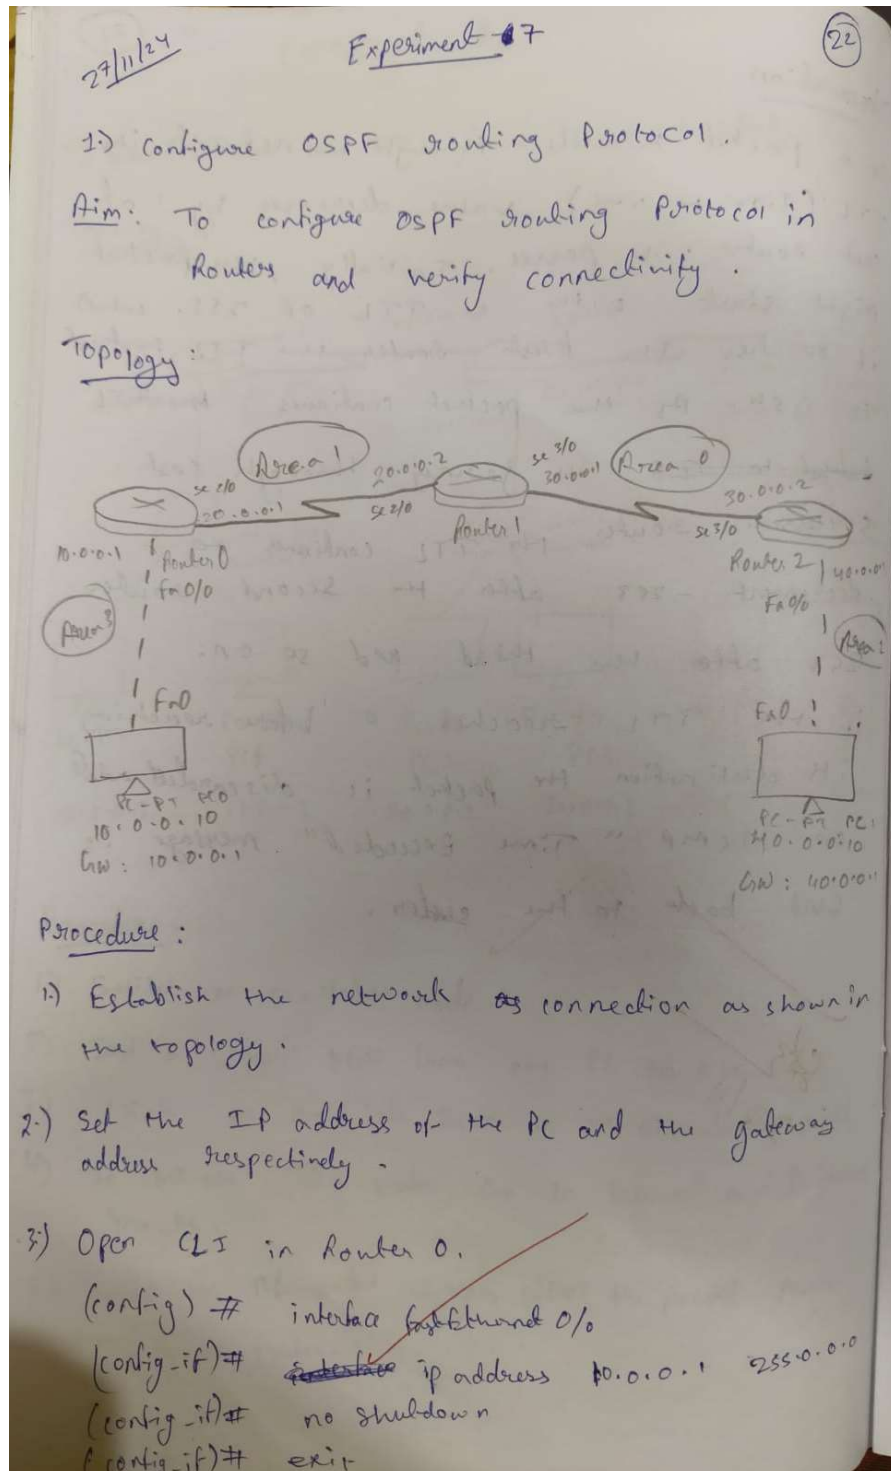 27/11/24
Experiment - 7
22
1.) Configure OSPF routing Protocol.
Aim: To configure OSPF routing Protocol in
Routers and verify connectivity.
Topology:
Area 1
se 2/0
20.0.0.1
20.0.0.2
se 2/0
Router 1
se 3/0
30.0.0.1
Area 0
30.0.0.2
se 3/0
10.0.0.1
Router 0
Fa 0/0
Area 3
Router 2
40.0.0.
Fa 0/0
Area
Fa0
Fa0
PC-PT
10.0.0.10
GW: 10.0.0.1
PC-PT PC
40.0.0.10
GW: 40.0.0.1
Procedure:
1.) Establish the network connection as shown in
the topology.
2.) Set the IP address of the PC and the gateway
address respectively.
3.) Open CLI in Router 0.
(config) # interface fastEthernet 0/0
(config-if)# ip address 10.0.0.1 255.0.0.0
(config-if)# no shutdown
(config-if)# exit